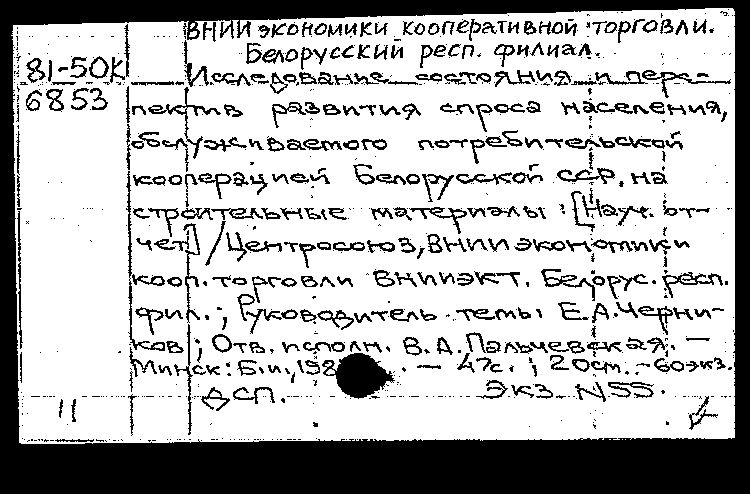 ВНИИ экономики кооперативной торговли.
Белорусский респ. филиал.
81-50К
6853
Исследование состояния и перс-
пектив развития спроса населения,
обслуживаемого потребительской
кооперацией Белорусской ССР, на
строительные материалы: [Науч. от-
чет] / Центросоюз, ВНИИ экономики
кооп. торговли ВНИИЭКТ. Белорус. респ.
фил.; Руководитель темы Е.А. Черни-
ков; Отв. исполн. В.А. Пальчевская. —
Минск: Б.и., 198 . — 47с.; 20см. - 60экз.
ДСП. Экз. N55.
11